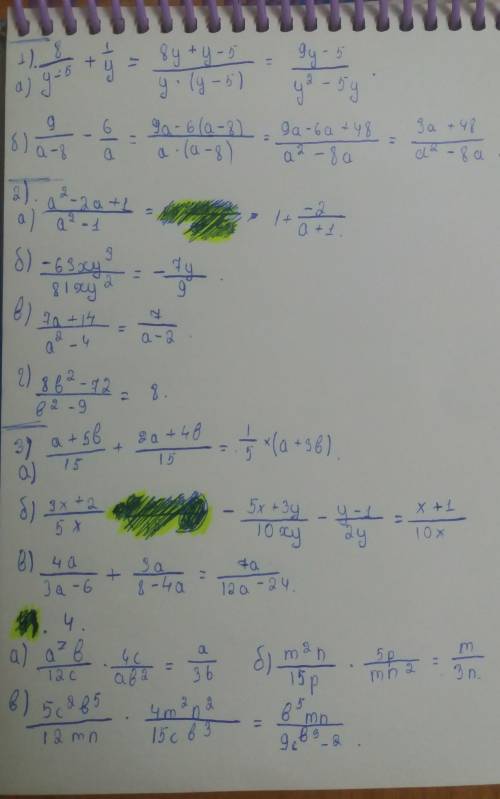 1). a) 8/(y-5) + 1/y = (8y+y-5)/(y·(y-5)) = (9y-5)/(y²-5y).
б) 9/(a-8) - 6/a = (9a-6(a-8))/(a·(a-8)) = (9a-6a+48)/(a²-8a) = (3a+48)/(a²-8a)
2). a) (a²-2a+1)/(a²-1) = 1+(-2)/(a+1).
б) (-63xy³)/(81xy²) = -7y/9.
в) (7a+14)/(a²-4) = 7/(a-2).
г) (8в²-72)/(в²-9) = 8.
3) a) (a+5в)/15 + (2a+4в)/15 = 1/5 × (a+3в).
б) (3x+2)/5x - (5x+3y)/10xy - (y-1)/2y = (x+1)/10x
в) 4a/(3a-6) + 3a/(8-4a) = 7a/(12a-24).
4.
a) a²в/12c · 4c/aв² = a/3в б) m²n/15p · 5p/mn² = m/3n.
в) 5c²в⁵/12mn · 4m²n²/15cв³ =